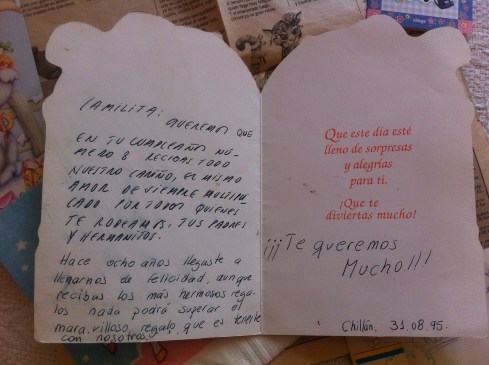 CAMILITA:
QUEREMOS QUE
EN TU CUMPLEAÑOS NÚ-
MERO 8 RECIBAS TODO
NUESTRO CARIÑO, EL MISMO
AMOR DE SIEMPRE MULTIPLI
CADO POR TODOS QUIENES
TE RODEAMOS, TUS PADRES
Y HERMANITOS.
Hace ocho años llegaste a
llenarnos de felicidad, aunque
recibas los más hermosos rega-
los nada podrá superar el
maravilloso regalo que es tenerte
con nosotros.
Que este día esté
lleno de sorpresas
y alegrías
para ti.
¡Que te
diviertas mucho!
¡¡¡Te queremos
Mucho!!!
Chillán, 31.08.95.